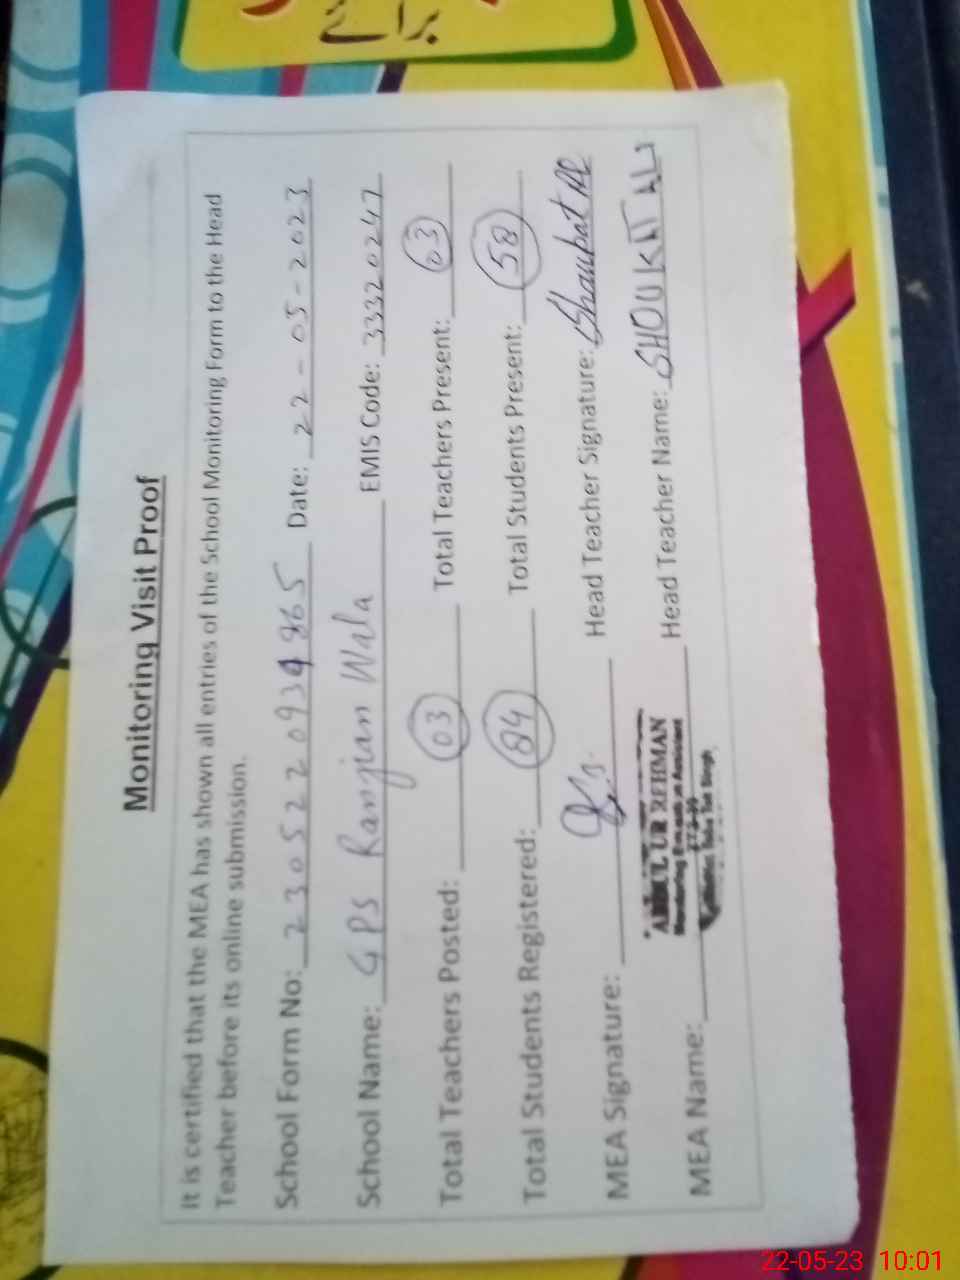 برائے
Monitoring Visit Proof
It is certified that the MEA has shown all entries of the School Monitoring Form to the Head
Teacher before its online submission.
School Form No: 2305220934965 Date: 22-05-2023
School Name: GPS Ranjian Wala EMIS Code: 33320247
Total Teachers Posted: 03 Total Teachers Present: 03
Total Students Registered: 84 Total Students Present: 58
MEA Signature: Head Teacher Signature: Shaukat Ali
ABDUL UR REHMAN
Monitoring Evaluation Assistant
MEA Name: Head Teacher Name: SHOUKAT ALI
22-05-23 10:01